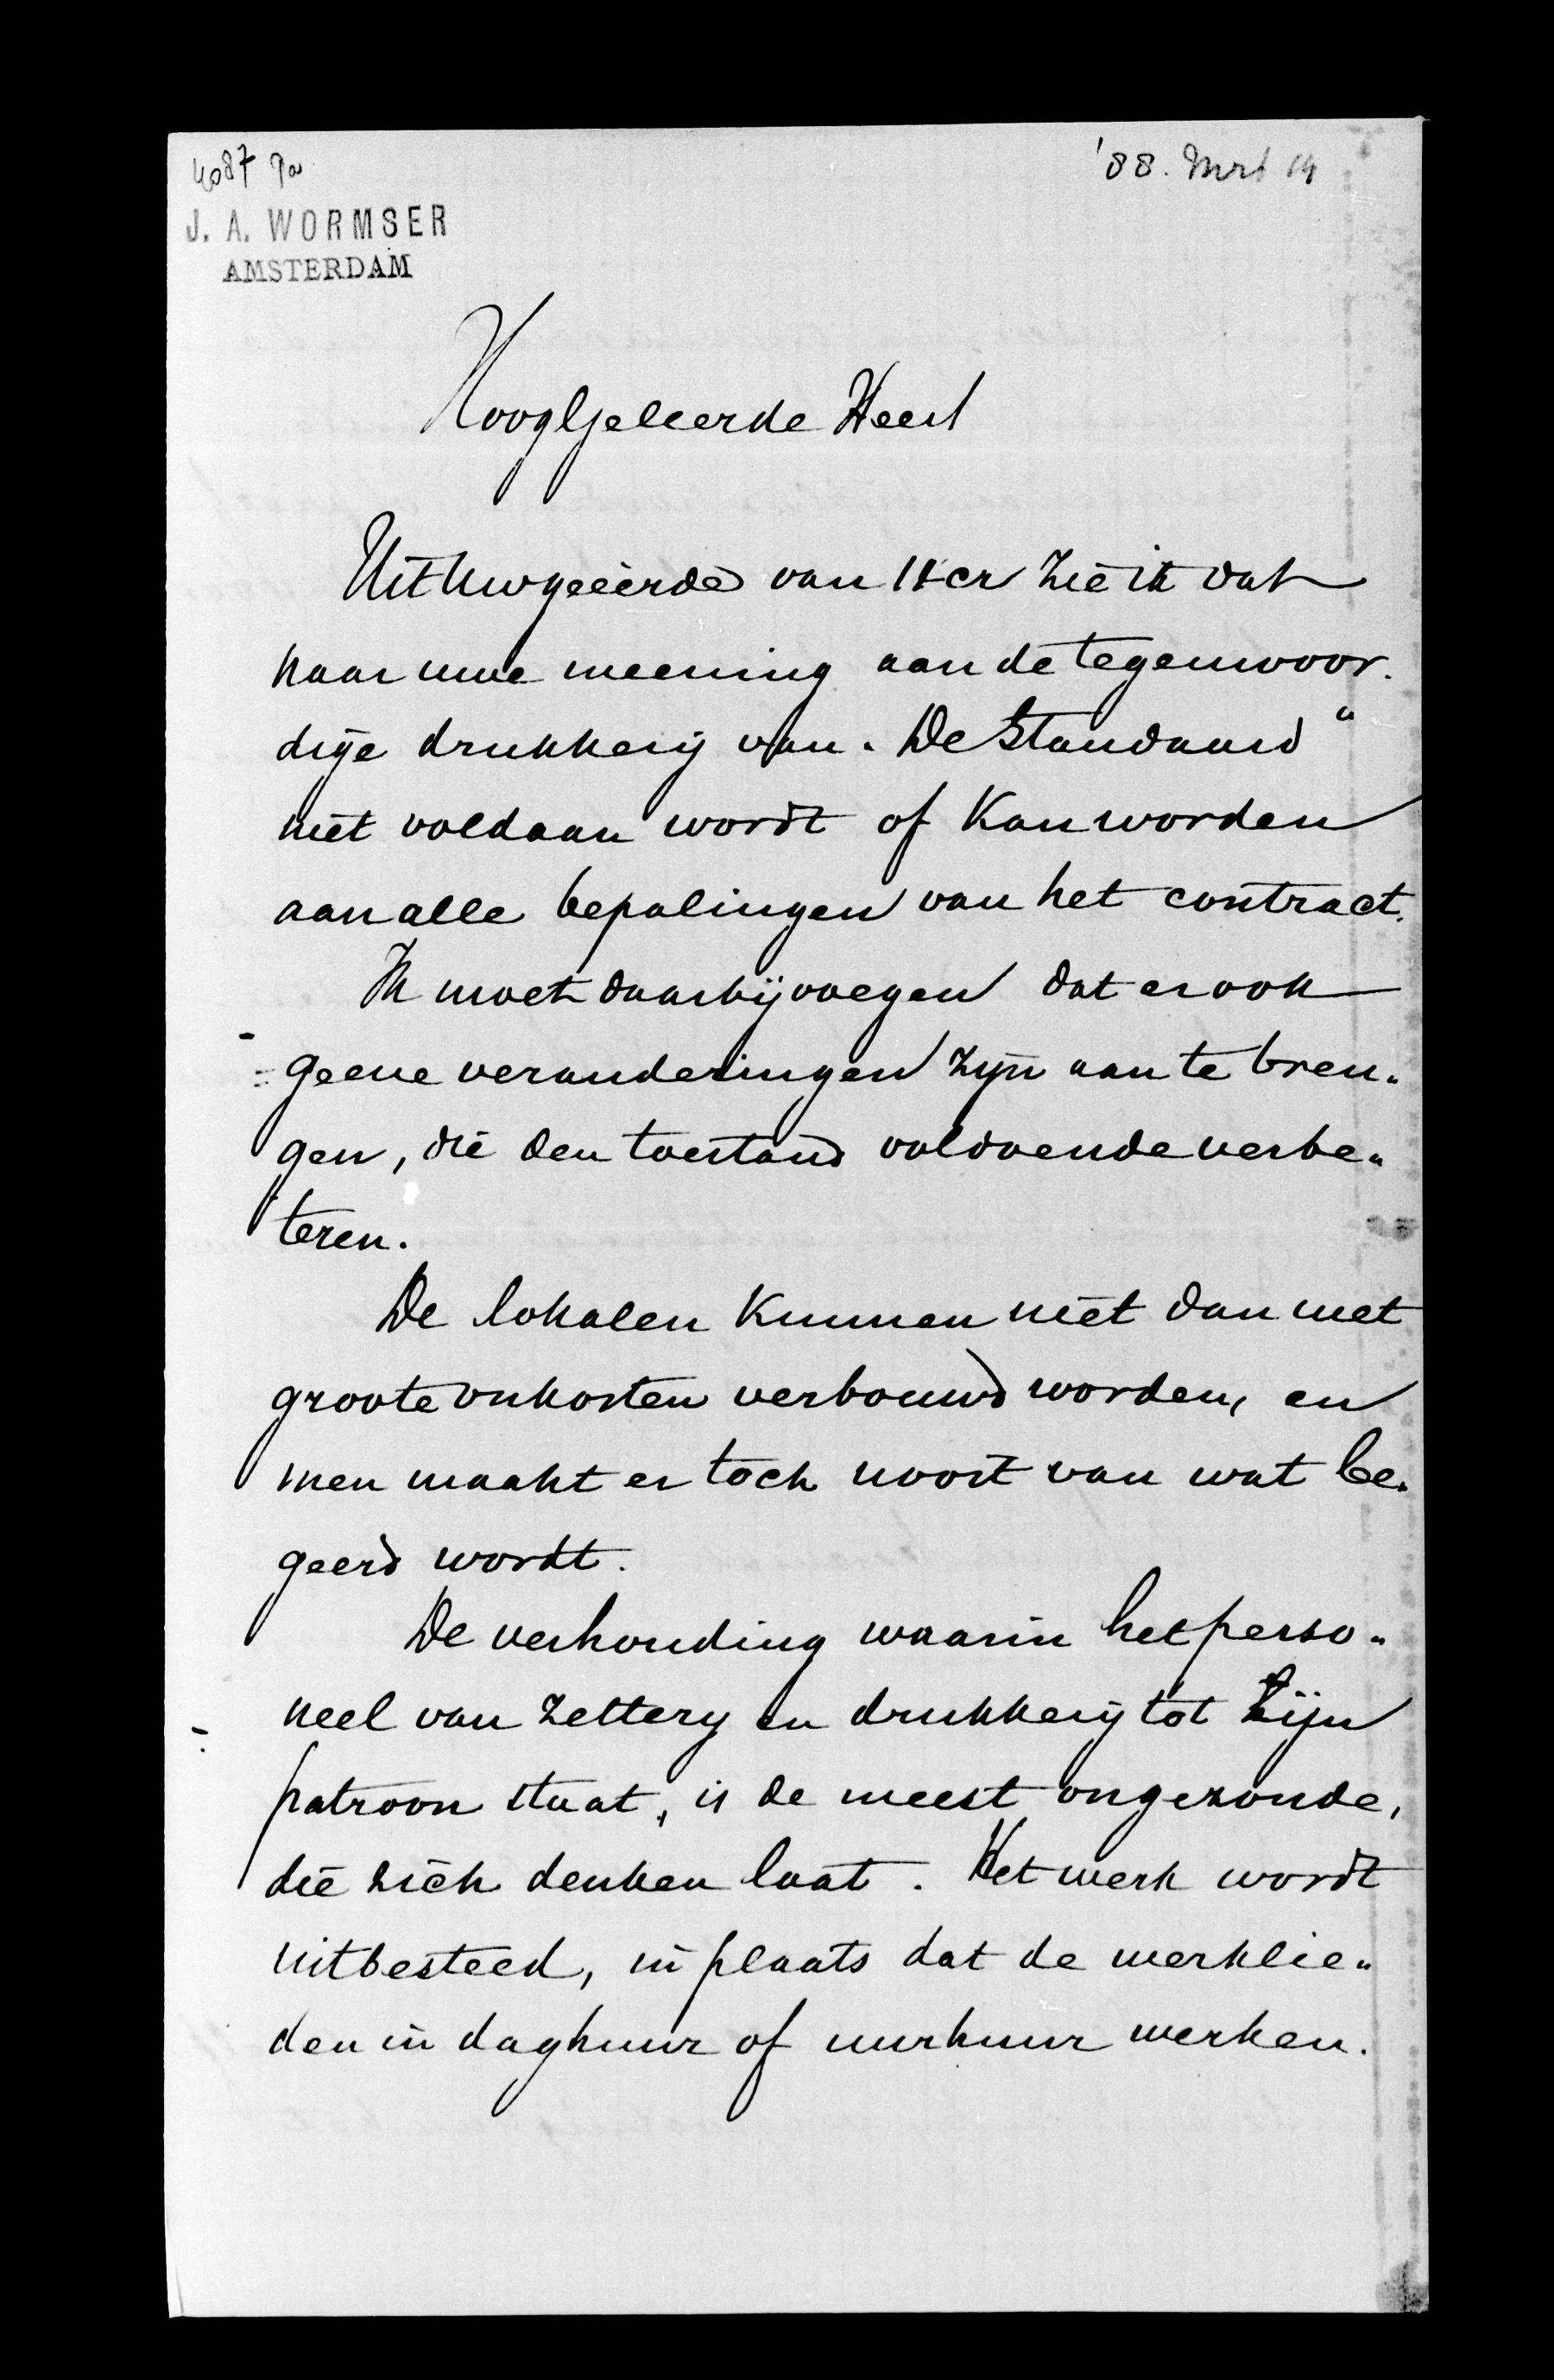 4087 9a
'88. Mrt 14
J. A. WORMSER
AMSTERDAM
HoogGeleerde Heer!
Uit Uw geëerde van 14 cr zie ik dat
naar uwe meening aan de tegenwoor-
dige drukkerij van „De Standaard"
niet voldaan wordt of kan worden
aan alle bepalingen van het contract.
Ik moet daarbij voegen dat er ook
geene veranderingen zijn aan te bren-
gen, die den toestand voldoende verbe-
teren.
De lokalen kunnen niet dan met
groote onkosten verbouwd worden, en
men maakt er toch nooit van wat be-
geerd wordt.
De verhouding waarin het perso-
neel van zettery en drukkerij tot zijn
patroon staat, is de meest ongezonde,
die zich denken laat. Het werk wordt
uitbesteed, in plaats dat de werklie-
den in daghuur of uurhuur werken.